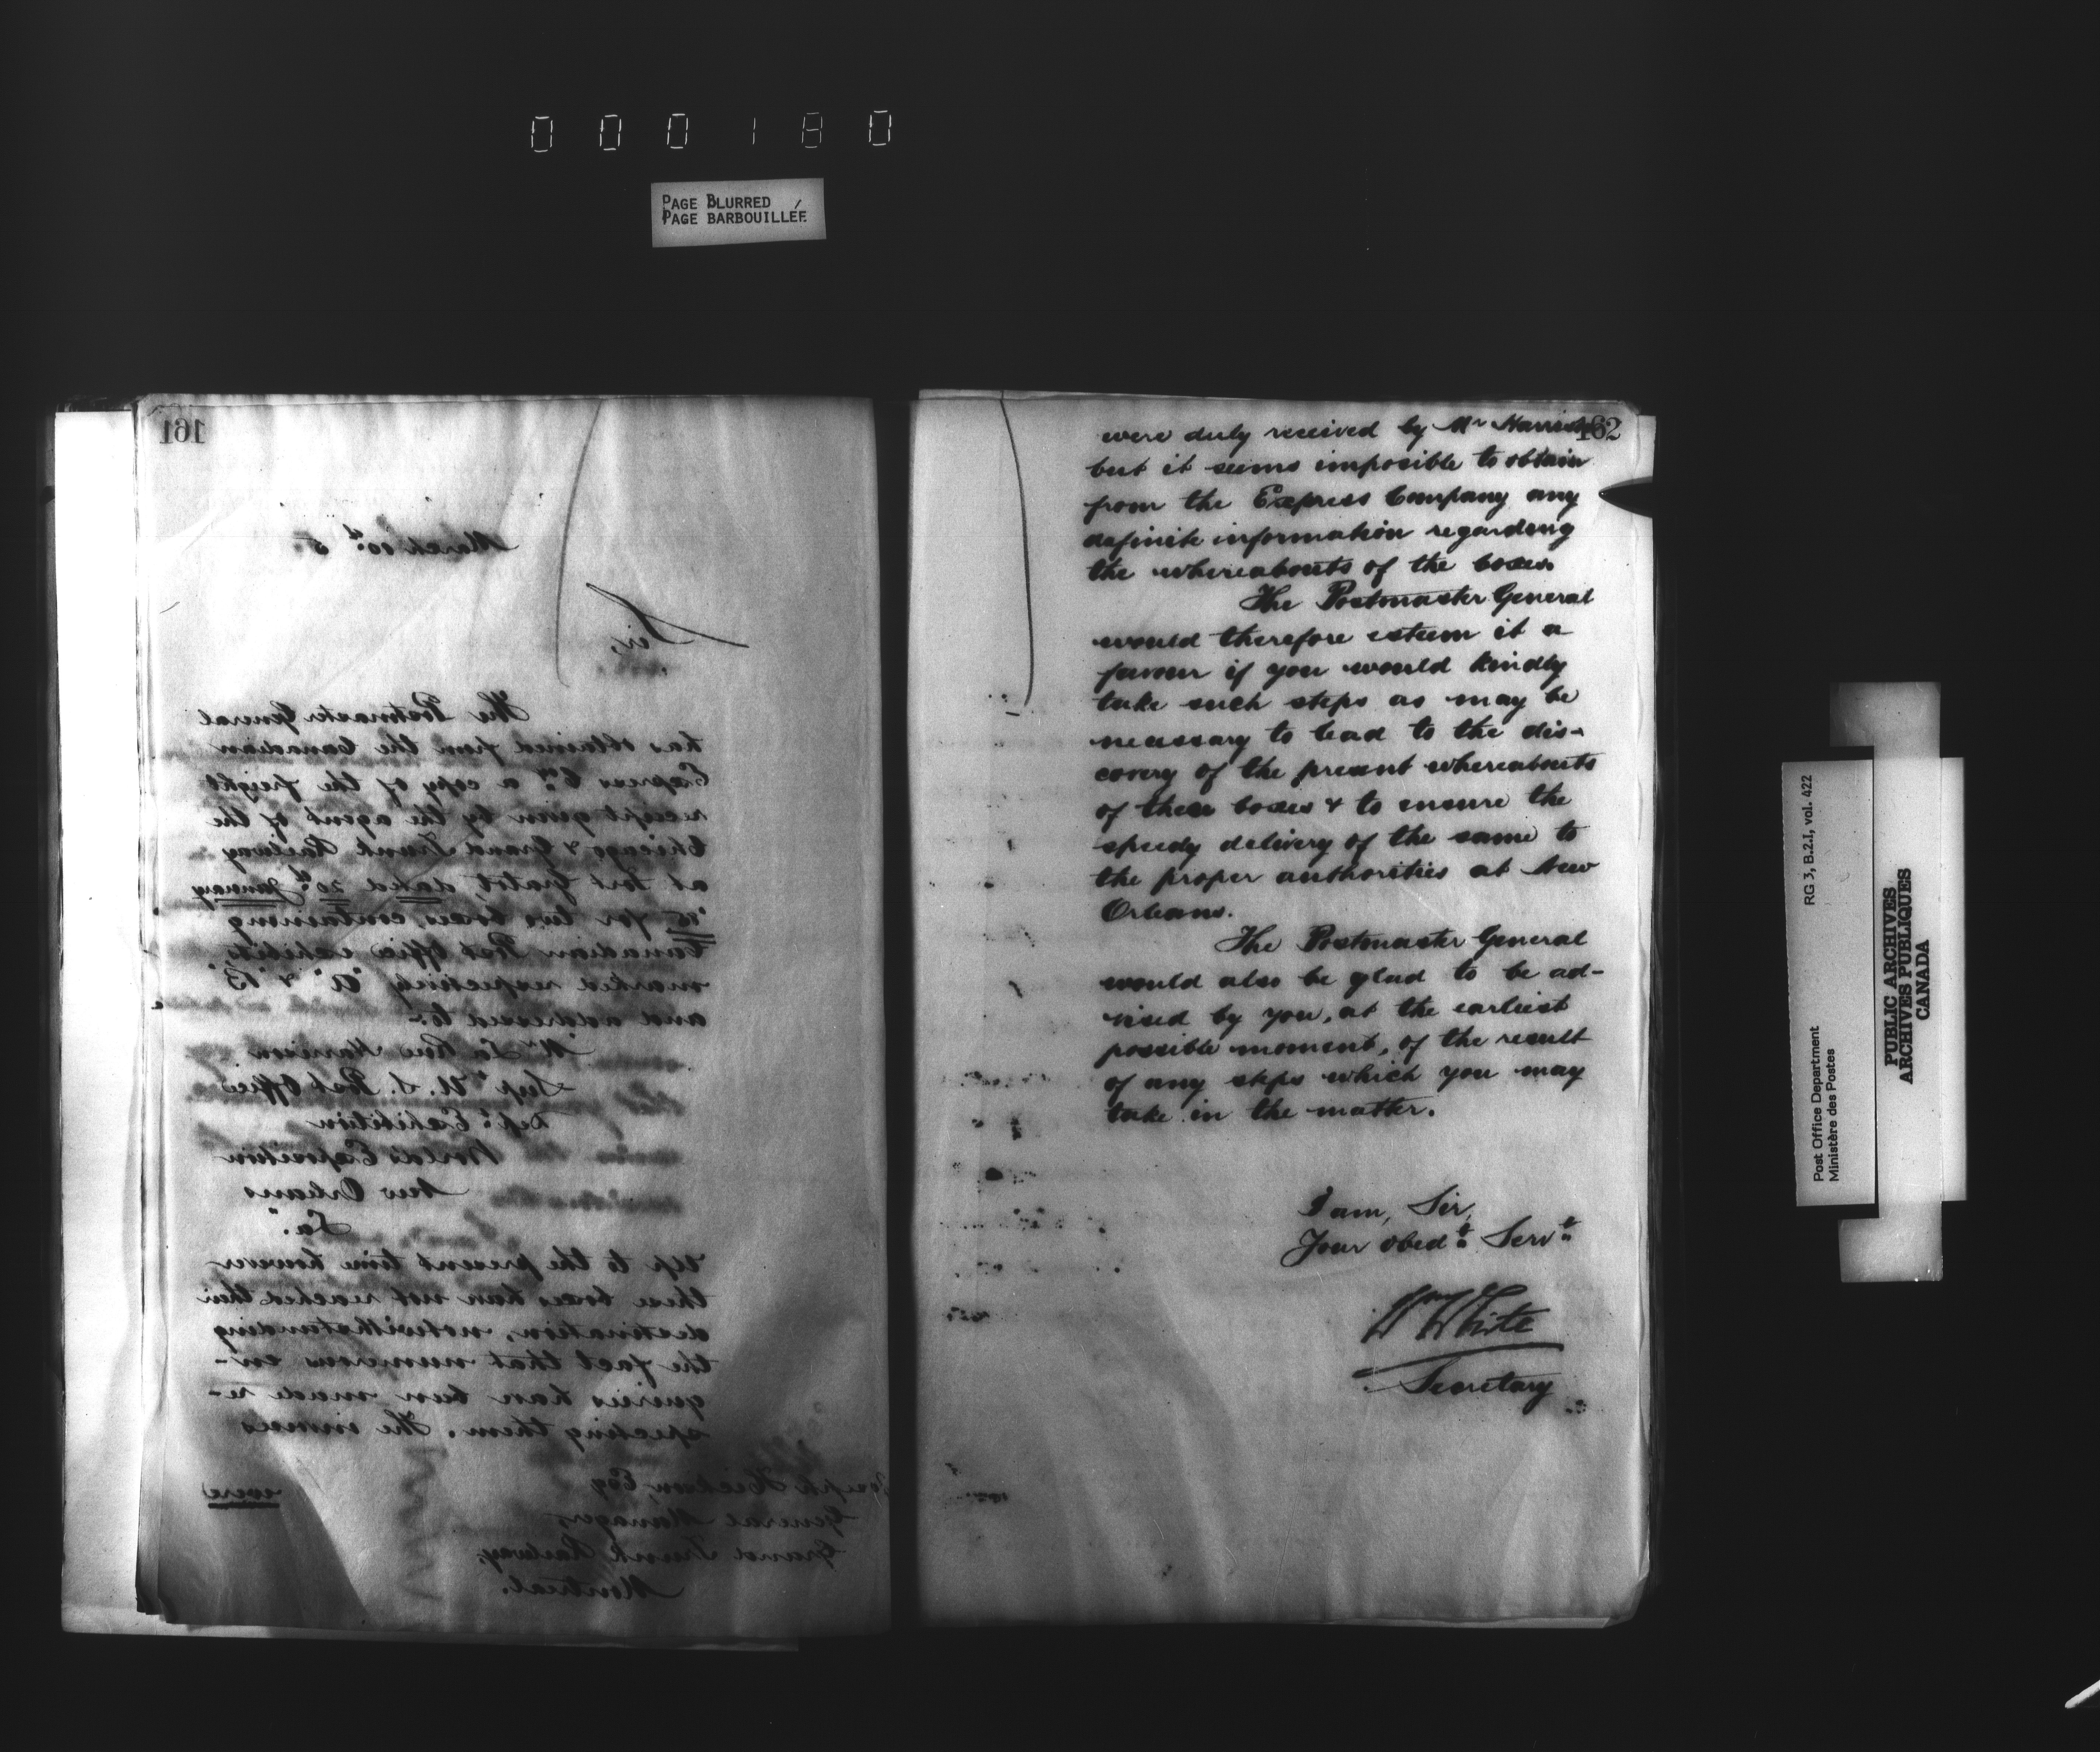 000180
PAGE BLURRED
PAGE BARBOUILLÉE
161
March 10th 5.
Sir,
The Postmaster General
has obtained from the Canadian
Express Coy. a copy of the freight
receipt given by the agent of the
Chicago & Grand Trunk Railway
at Fort Gratiot, dated 20th January
'85 for two boxes, containing
Canadian Post Office exhibits,
marked respectively "A" & "B"
and addressed to:-
Mr La Rue Harrison
Supt U. S. Post Office
Dept. Exhibition
World's Exposition
New Orleans
La.
Up to the present time however
these boxes have not reached their
destination, notwithstanding
the fact that numerous en-
quiries have been made re-
specting them. The invoices
were
Joseph Hickson, Esq
General Manager,
Grand Trunk Railway,
Montreal.
162
were duly received by Mr Harrison
but it seems imposible to obtain
from the Express Company any
definite information regarding
the whereabouts of the boxes
The Postmaster General
would therefore esteem it a
favour if you would kindly
take such steps as may be
necessary to lead to the dis-
covery of the present whereabouts
of these boxes & to ensure the
speedy delivery of the same to
the proper authorities at New
Orleans.
The Postmaster General
would also be glad to be ad-
vised by you, at the earliest
possible moment, of the result
of any steps which you may
take in the matter.
I am, Sir,
Your obedt. Servt.
Wm White
Secretary
Post Office Department
Ministère des Postes
RG 3, B.2.I, vol. 422
PUBLIC ARCHIVES
ARCHIVES PUBLIQUES
CANADA